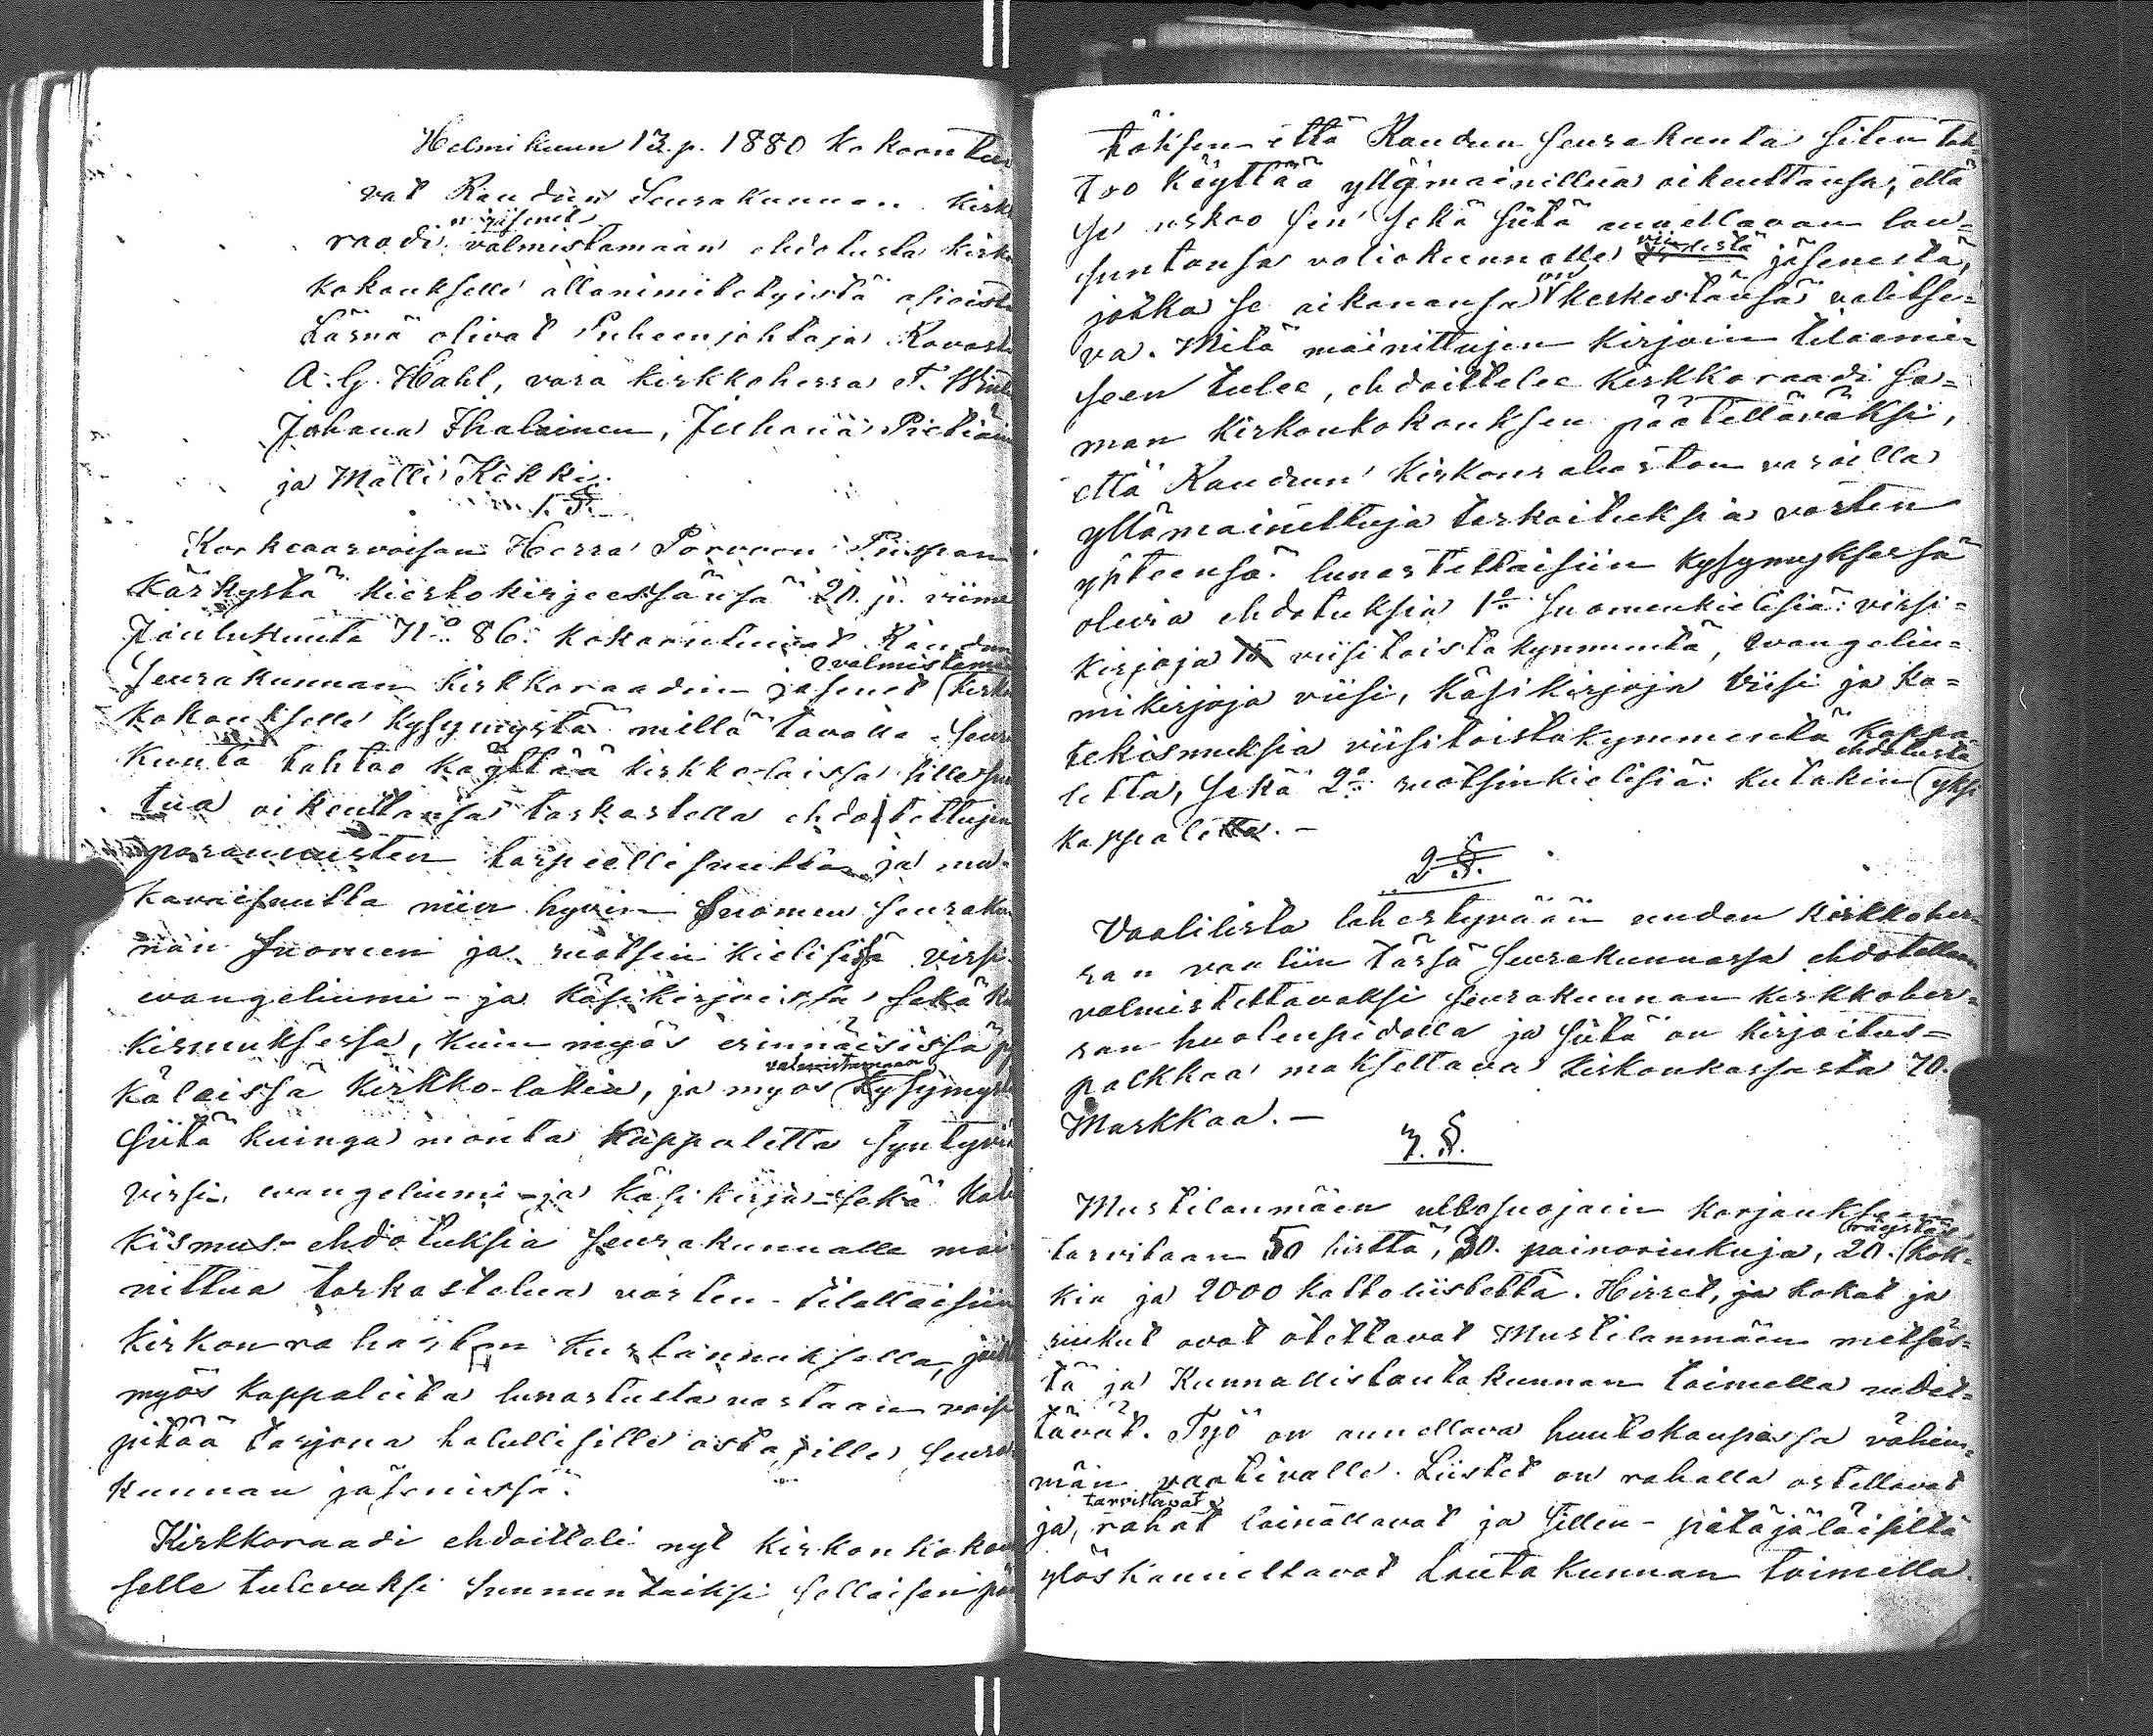 Helmikuun 13. p. 1880 kokoontui
vat Raudun Seurakunnan kirk
raadin jäsenet valmistamaan ehdotusta kirk
kokoukselle allanimitetyistä asioista
Läsnä olivat Puheenjohtaja Rovasti
A. G. Hahl, vara kirkkoherra
Juhana Ihalainen, Juhana Pietiäin
ja Matti Kekki.
1. §.
Korkeaarvoisan Herra Porvoon Piispan
käskystä kiertokirjeessänsä 20. p. viime
Joulukuuta No 86. kokoontuivat Raudun
Seurakunnan kirkkoraadin jäsenet valmistama kirko
kokoukselle kysymystä millä tavalla Seura
kunta tahtoo käyttää kirkkolaissa sille suo
tua oikeuttansa tarkastella ehdotettujen
parannusten tarpeellisuutta ja mu-
kavaisuutta niin hyvin Suomen seuraku
nan Suomen ja ruotsin kielisissä virsi-
evangeliumi- ja käsikirjoissa sekä ka
kismuksessa, kuin myös erinnäisissä py
käläissä kirkko-lakia, ja myös valmistamaan kysymyst
siitä kuinga monta kappaletta syntyvi
virsi, evangeliumi- ja käsikirja- sekä kate
kismus-ehdotuksia seurakunnalle mai
nittua tarkastelua varten tilattaisiin
kirkonrahaston kustannuksella, joit
myös kappaleita lunastusta vastaan voisi
pitää tarjona halullisille ostajille seura
kunnan jäsenissä.
Kirkkoraadi ehdoitteli nyt kirkonkokou
selle tulevaksi sunnuntaiksi sellaisen pää
töksen että Raudun seurakunta siten tah-
too käyttää yllämainittua oikeuttansa, että
se uskoo sen sekä siitä annettavan lau-
suntansa valiokunnalle viidestä jäsenestä,
jotka se aikanansa on keskestänsä valitse-
va. Mitä mainittujen kirjain tilaami-
seen tulee, ehdoittelee kirkkoraadi sa-
man kirkonkokouksen päätettäväksi,
että Raudun kirkonrahaston varoilla
yllämainittuja tarkoituksia varten
yhteensä lunastettaisiin kysymyksessä
olevia ehdotuksia 1o Suomenkielisiä: virsi-
kirjoja 15 viisitoistakymmentä, evangeliu-
mikirjoja viisi, käsikirjoja viisi ja ka-
tekismuksia viisitoistakymmentä kappa
letta, sekä 2o ruotsinkielisiä: kutakin ehdotusta yksi
kappaletta. —
2 §.
Vaalilista lähestyvään uuden kirkkoher
ran vaaliin tässä seurakunnassa ehdotellaan
valmistettavaksi seurakunnan kirkkoher-
ran huolenpidolla ja siitä on kirjoitus-
palkkaa maksettava kirkonkassasta 70.
Markkaa. —
3. §.
Mustilanmäen ulkosuojain korjaukseen
tarvitaan 50 hirttä, 30. painoriukuja, 20. räystäs kok-
kia ja 2000 kattoliistettä. Hirret, ja kokat ja
riukut ovat otettavat Mustilanmäen metsäs-
tä ja Kunnallislautakunnan toimella vedet-
tävät. Työ on annettava huutokaupassa vähim-
män vaativalle. Liistet on rahalla ostettavat
ja, tarvittavat rahat lainattavat ja sitten pitäjäläisiltä
ylöskannettavat Lautakunnan toimella.